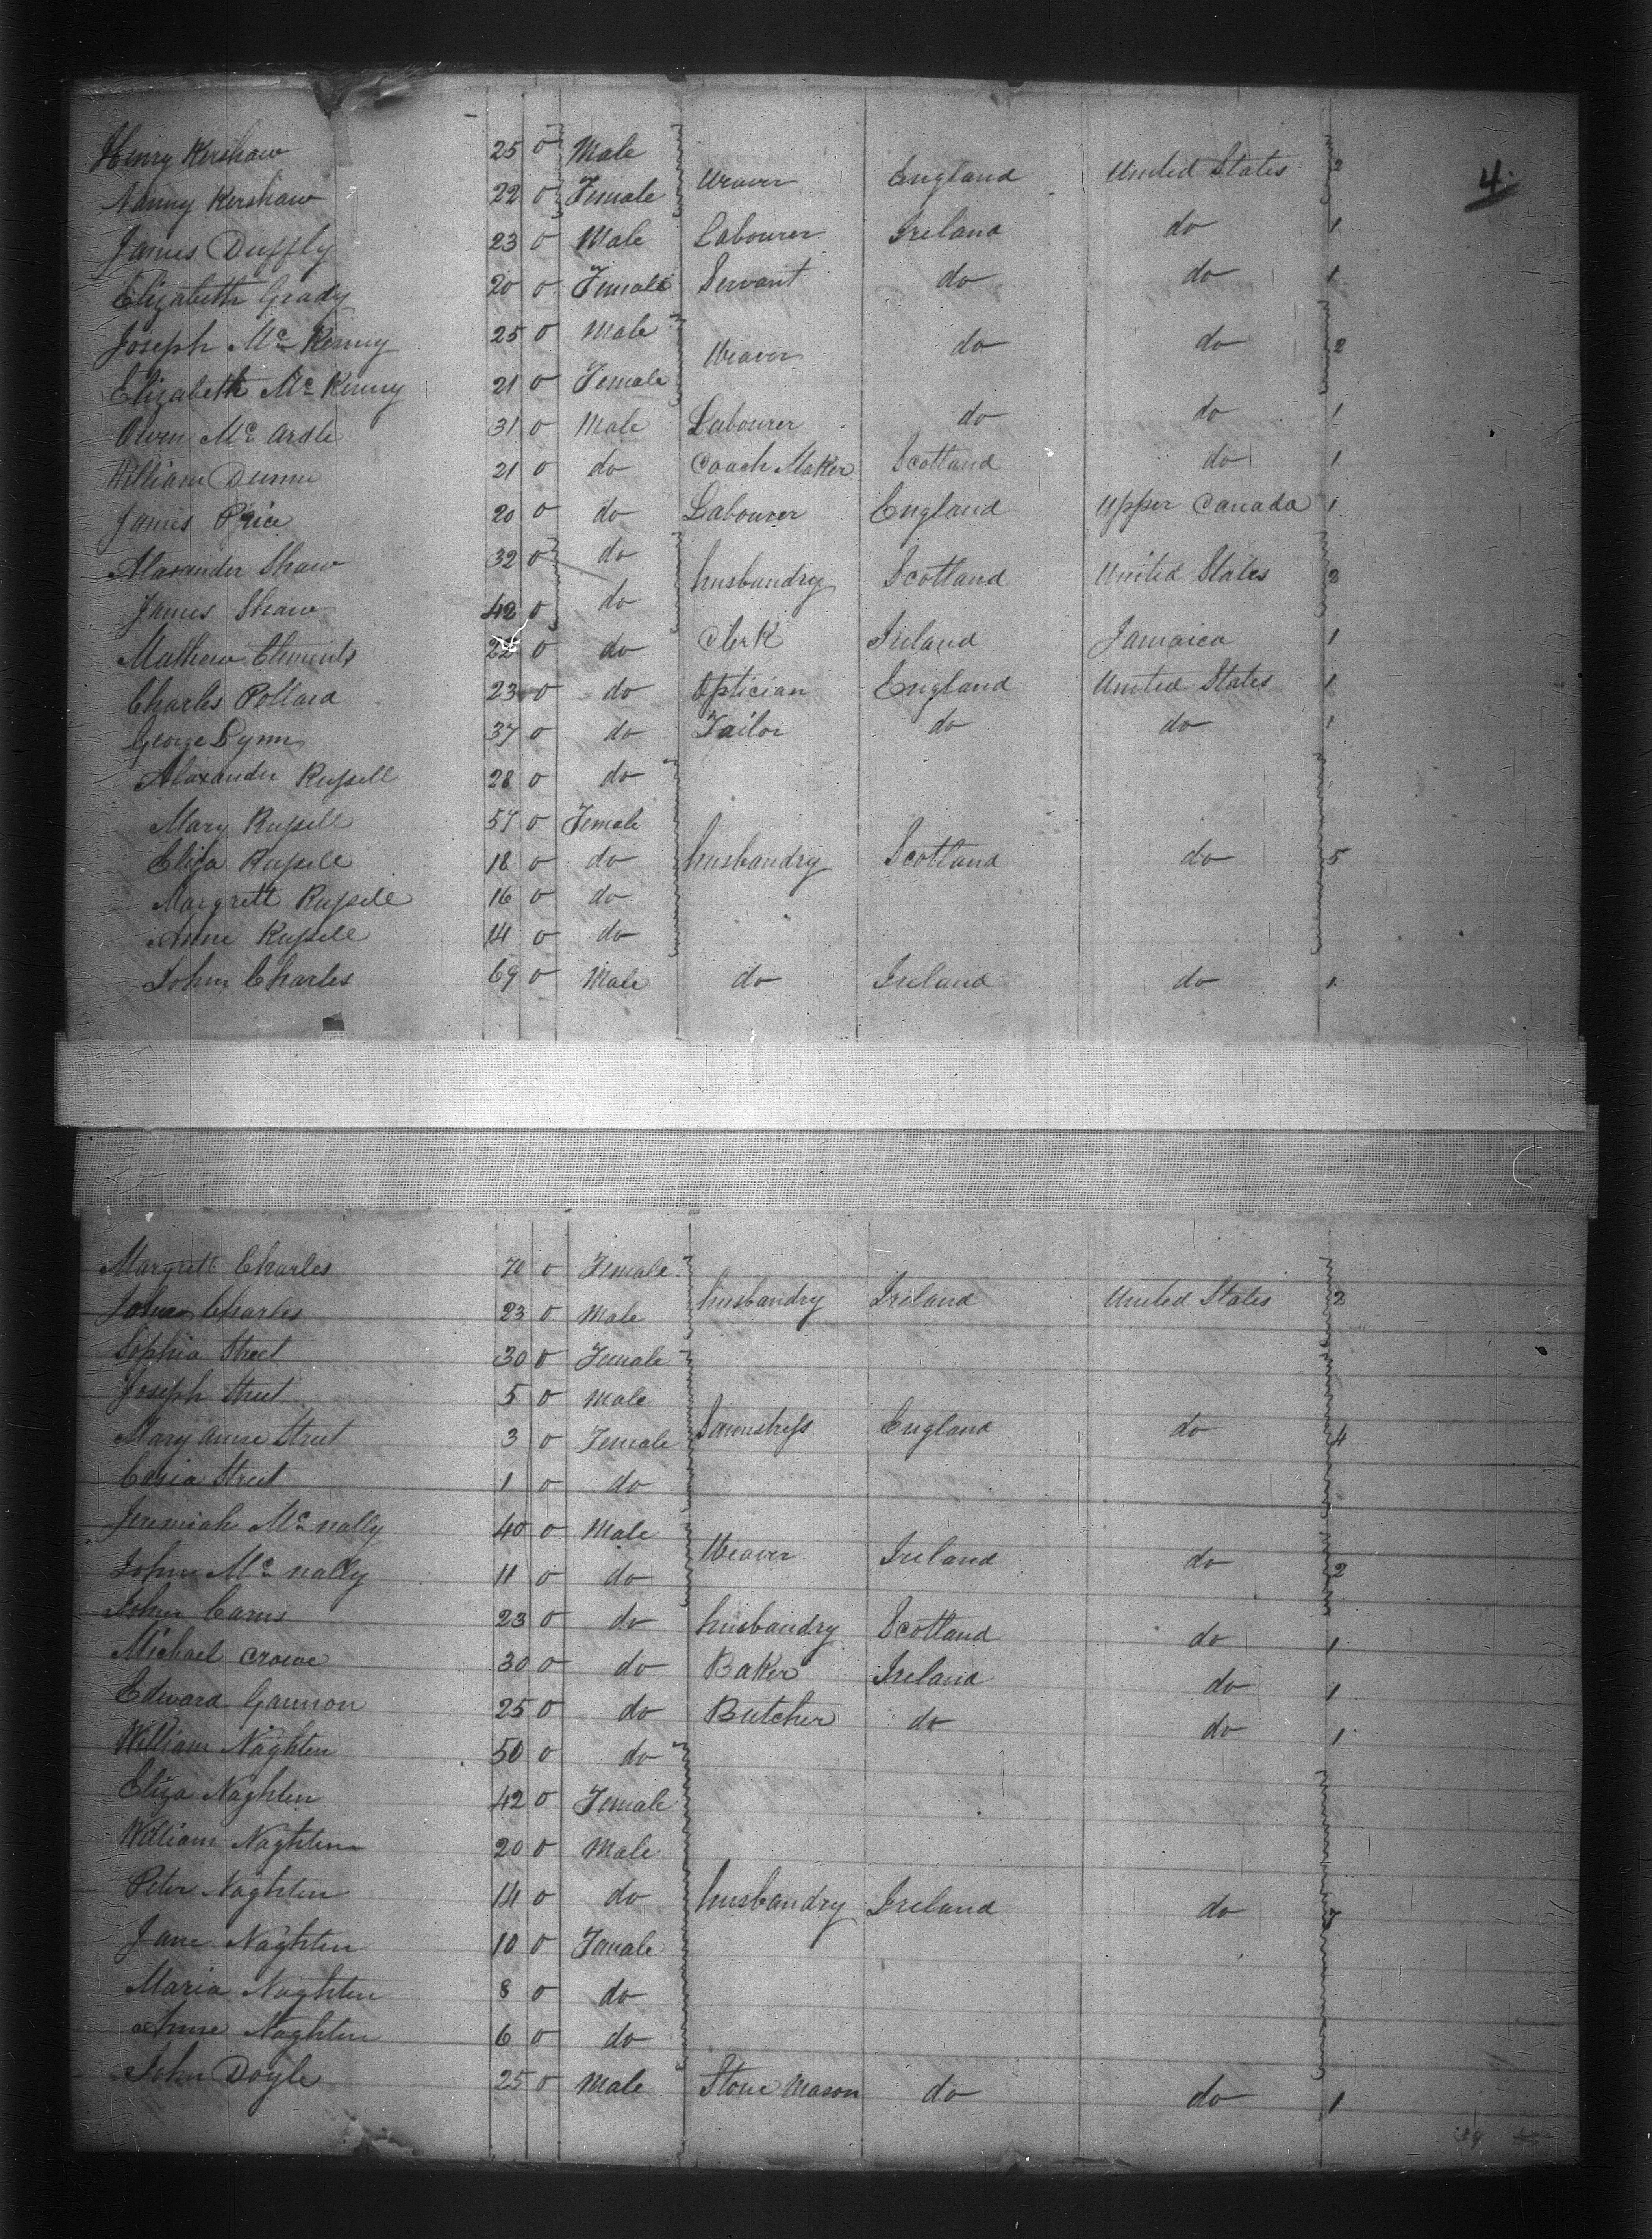 4.
Henry Kershaw 25 0 Male
Weaver England United States 2
Nanny Kershaw 22 0 Female
James Duffly 23 0 Male Labourer Ireland do 1
Elizabeth Grady 20 0 Female Servant do do 1
Joseph Mc Kenny 25 0 Male
Weaver do do 2
Elizabeth Mc Kenny 21 0 Female
Owen Mc Ardle 31 0 Male Labourer do do 1
William Dunn 21 0 do Coach Maker Scotland do 1
James Price 20 0 do Labourer England Upper Canada 1
Alaxander Shaw 32 0 do
husbandry Scotland United States 2
James Shaw 42 0 do
Mathew Clements 22 0 do Clerk Ireland Jamaica 1
Charles Pollard 23 0 do Optician England United States 1
George Lynn 37 0 do Tailor do do 1
Alaxander Russell 28 0 do
Mary Russell 57 0 Female
Eliza Russell 18 0 do husbandry Scotland do 5
Margrett Russell 16 0 do
Anne Russell 14 0 do
John Charles 69 0 Male do Ireland do 1
Margrett Charles 70 0 Female
husbandry Ireland United States 2
Charles 23 0 Male
Sophia Street 30 0 Female
Joseph Street 5 0 Male
Mary anne Street 3 0 Female Saumstress England do 4
Street 1 0 do
Jeremiah Mc nally 40 0 Male
Weaver Ireland do 2
John Mc nally 11 0 do
John Carns 23 0 do husbandry Scotland do 1
Michael Crowe 30 0 do Baker Ireland do 1
Edward Gannon 25 0 do Butcher do do 1
William Naghten 50 0 do
Eliza Naghten 42 0 Female
William Naghten 20 0 Male
Peter Naghten 14 0 do husbandry Ireland do 7
Jane Naghten 10 0 Female
Maria Naghten 8 0 do
Anne Naghten 6 0 do
John Doyle 25 0 Male Stone Mason do do 1
39